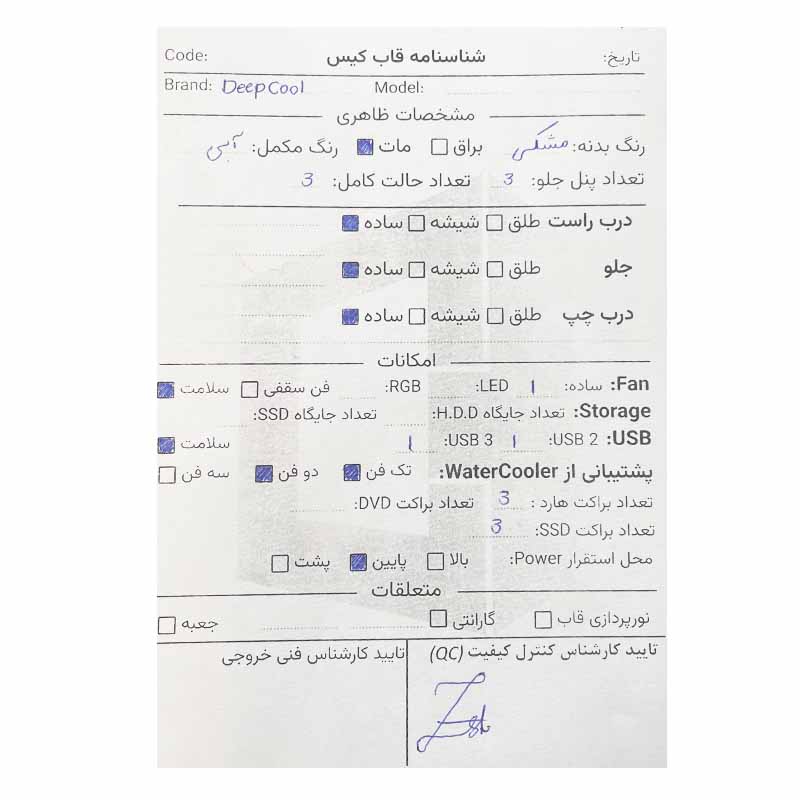 Code: شناسنامه قاب کیس تاریخ:
Brand: DeepCool Model:
مشخصات ظاهری
رنگ بدنه: مشکی براق مات رنگ مکمل: آبی
تعداد پنل جلو: 3 تعداد حالت کامل: 3
درب راست طلق شیشه ساده
جلو طلق شیشه ساده
درب چپ طلق شیشه ساده
امکانات
Fan: ساده: 1 LED: RGB: فن سقفی سلامت
Storage: تعداد جایگاه H.D.D: تعداد جایگاه SSD:
USB: USB 2: 1 USB 3: 1 سلامت
پشتیبانی از WaterCooler: تک فن دو فن سه فن
تعداد براکت هارد : 3 تعداد براکت DVD:
تعداد براکت SSD: 3
محل استقرار Power: بالا پایین پشت
متعلقات
نورپردازی قاب گارانتی جعبه
تایید کارشناس کنترل کیفیت (QC) تایید کارشناس فنی خروجی